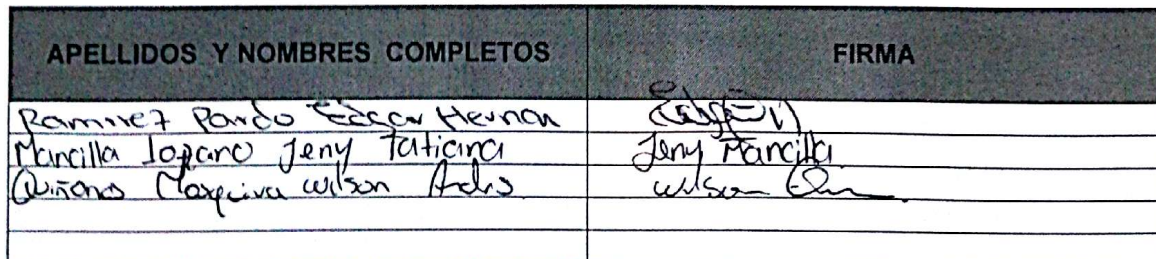 APELLIDOS Y NOMBRES COMPLETOS FIRMA
Ramirez Pardo Edgar Hernan
Mancilla Lozano Jeny Tatiana Jeny Mancilla
Quiñones Wilson Wilson